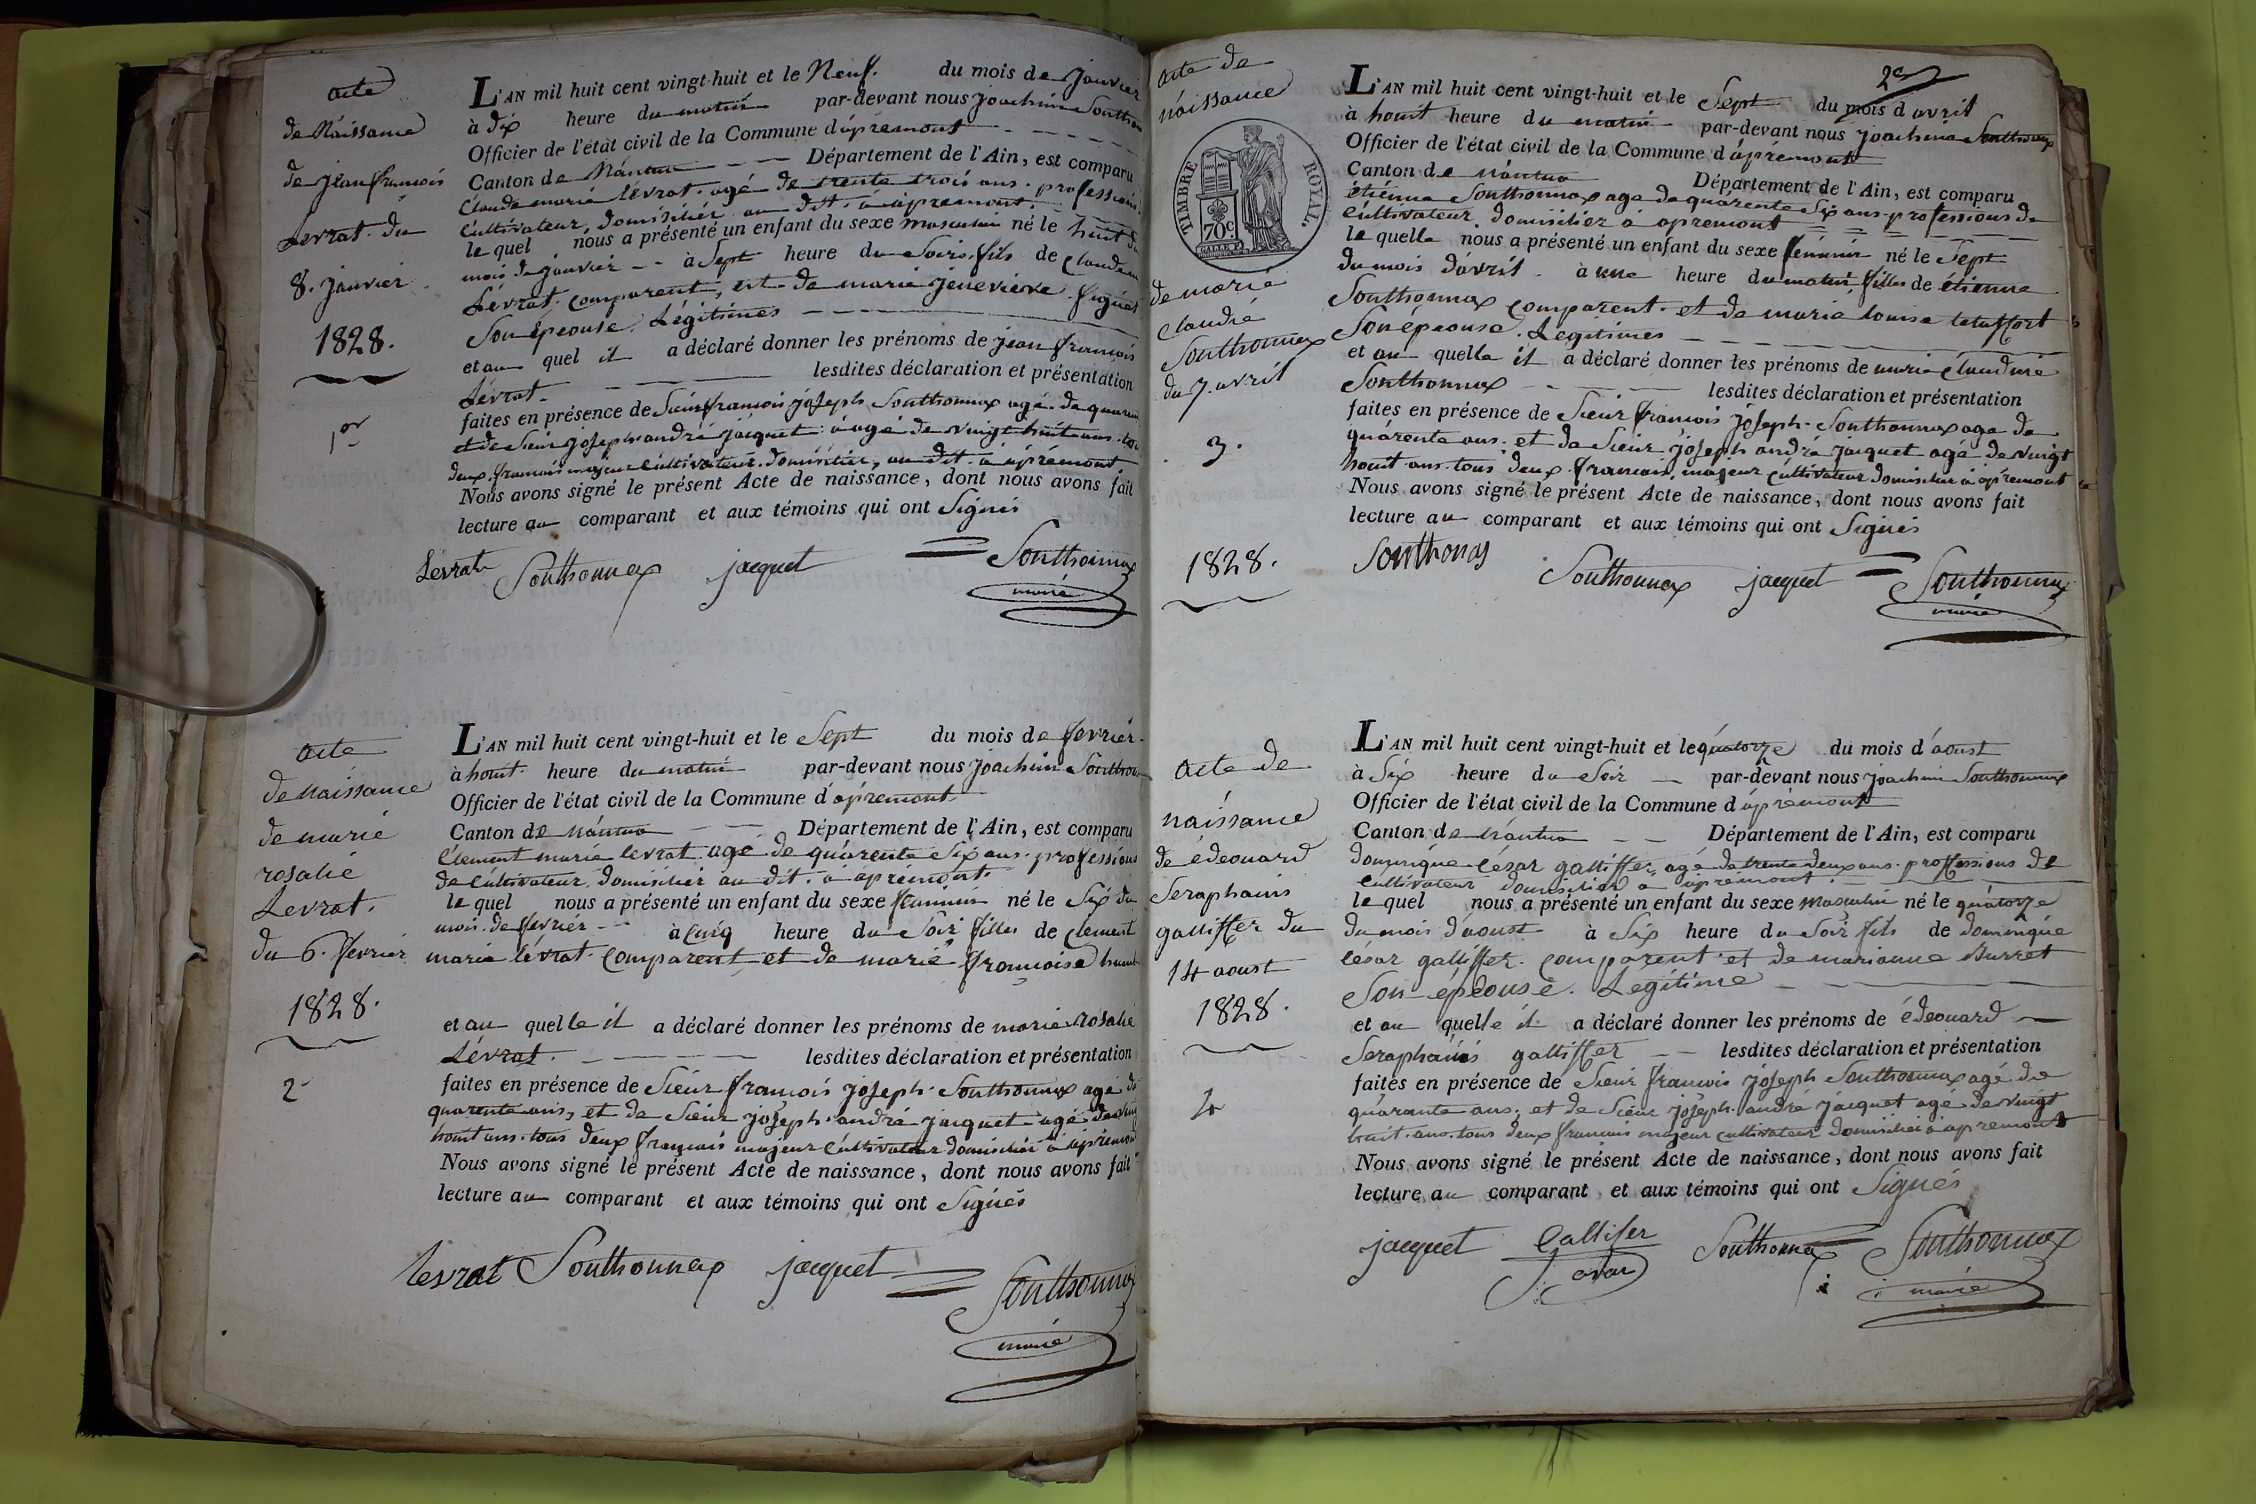 acte
de Naissance
de jean françois
Levrat. du
8. janvier
1828.
1er
L'AN mil huit cent vingt-huit et le Neuf. du mois de janvier
à dix heure du matin par-devant nous joachim Sonthon
Officier de l'état civil de la Commune d'apremont
Canton de Nantua Département de l'Ain, est comparu
Claude marie levrat. agé de trente trois ans. professions.
Cultivateur, domisilier au dit. a apremont.
le quel nous a présenté un enfant du sexe masculin né le huit du
mois de janvier à Sept heure du Soirs. fils de Claude
Lévrat. comparent, et de marie jenevieve
Son épeouse. Légitimes
et au quel il a déclaré donner les prénoms de jean françois
Lévrat. lesdites déclaration et présentation
faites en présence de Sieur françois joseph Sonthonnax agé de quaran
et de Sieur joseph andré jacquet agé de vingt huit ans. tou
deux français majeur Cultivateur. domisilier, au dit. a apremont
Nous avons signé le présent Acte de naissance, dont nous avons fait
lecture au comparant et aux témoins qui ont Signés
Levrat Sonthonnax jacquet Sonthonnax
maire
acte
de Naissance
de marie
rosalie
Levrat.
du 6. fevrier
1828.
2
L'AN mil huit cent vingt-huit et le Sept du mois de fevrier.
à houit. heure du matin par-devant nous joachim Sonthon
Officier de l'état civil de la Commune d'apremont
Canton de Nantua Département de l'Ain, est comparu
Clement marie levrat agé de quarente Six ans. professions
de Cultivateur, domisilier au dit. a apremont.
le quel nous a présenté un enfant du sexe feminin né le Six du
mois. de fevrier à Cinq heure du Soir filles de clement
marie lévrat. Comparent et de marie françoise
et au quelle il a déclaré donner les prénoms de marie rosalie
Lévrat. lesdites déclaration et présentation
faites en présence de Sieur françois joseph. Sonthonnax agé de
quarente ans, et de Sieur joseph. andré jacquet agé de ving
houit ans. tous deux français majeur Cultivateur domisilier a apremon
Nous avons signé le présent Acte de naissance, dont nous avons fait
lecture au comparant et aux témoins qui ont Signés
levrat Sonthonnax jacquet Sonthonnax
maire
2e
acte de
naissance
TIMBRE ROYAL.
70c
de marie
claudie
Sonthonnax
du 7. avril
3.
1828.
L'AN mil huit cent vingt-huit et le Sept du mois d'avril
à houit heure du matin par-devant nous joachim Sonthonnax
Officier de l'état civil de la Commune d'apremont
Canton de Nantua Département de l'Ain, est comparu
étienne Sonthonnax age de quarente Six ans. professions de
Cultivateur domisilier a apremont
le quelle nous a présenté un enfant du sexe feminin né le Sept
du mois d'avril. à une heure du matin filles de étienne
Sonthonnax comparent. et de marie louise
Son épeouse. Legitimes
et au quelle il a déclaré donner les prénoms de marie claudine
Sonthonnax lesdites déclaration et présentation
faites en présence de Sieur françois joseph. Sonthonnax age de
quarente ans. et de Sieur joseph andré jacquet agé de vingt
houit ans. tous deux français majeur Cultivateur domisilier a apremont
Nous avons signé le présent Acte de naissance, dont nous avons fait
lecture au comparant et aux témoins qui ont Signés
Sonthonas Sonthonnax jacquet Sonthonnax
maire
Acte de
naissance
de édeouard
Seraphains
galliffer du
14 aoust
1828.
4
L'AN mil huit cent vingt-huit et le quatorze du mois d'aoust
à Six heure du Soir par-devant nous joachim Sonthonnax
Officier de l'état civil de la Commune d'apremont
Canton de Nantua Département de l'Ain, est comparu
dominique César galliffer, agé de trente deux ans. proffessions de
Cultivateur domisilier a apremont.
le quel nous a présenté un enfant du sexe masculin né le quatorze
du mois d'aoust à Six heure du Soir fils de dominique
César galliffer. comparent et de marianne Burret
Son épeouse. Legitime
et au quelle il a déclaré donner les prénoms de édeouard
Seraphains galliffer lesdites déclaration et présentation
faites en présence de Sieur françois joseph Sonthonnax agé de
quarante ans. et de Sieur joseph. andré jacquet agé de vingt
huit. ans. tous deux français majeur cultivateur domisilier a apremont
Nous avons signé le présent Acte de naissance, dont nous avons fait
lecture au comparant et aux témoins qui ont Signés
jacquet Gallifer Sonthonnax Sonthonnax
maire